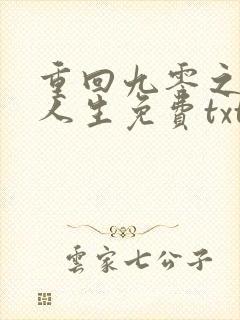 重回九零之
人生免费txt
雲家七公子